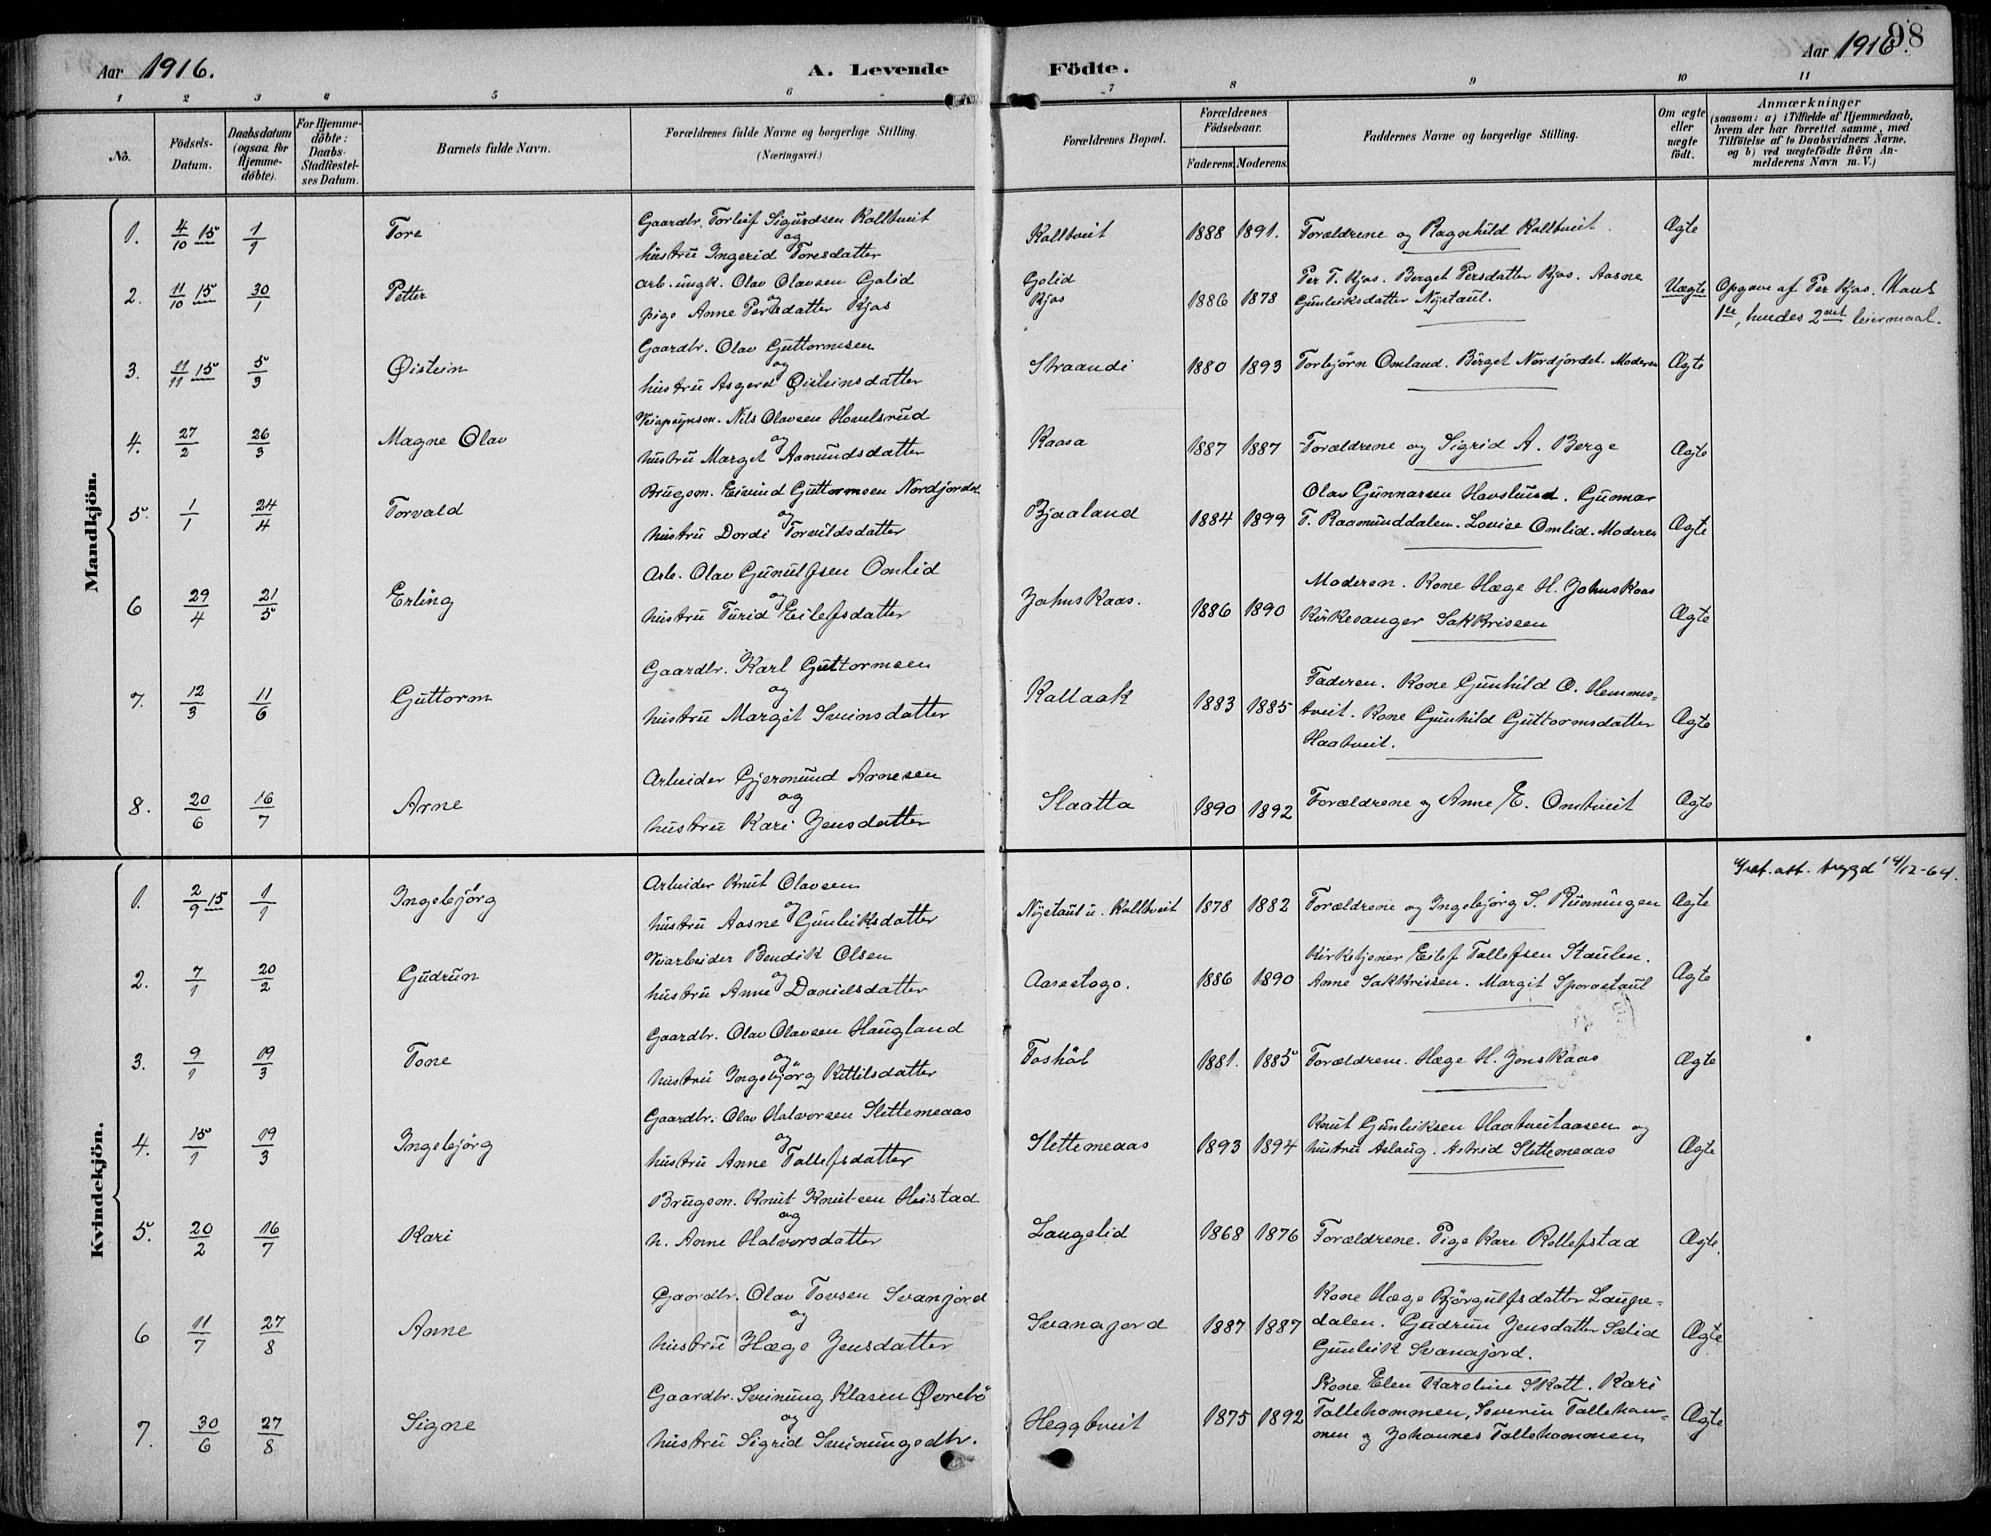 Aar 1916. A. Levende Födte. Aar 1916. 98
1 2 3 4 5 6 7 8 9 10 11
No. Födsels-Datum. Daabsdatum (ogsaa for Hjemmedöbte). For Hjemmedöbte: Daabs-Stadfæstelses Datum. Barnets fulde Navn. Forældrenes fulde Navne og borgerlige Stilling. (Næringsvei.) Forældrenes Bopæl. Forældrenes Födselsaar. Faderens. Moderens. Faddernes Navne og borgerlige Stilling. Om ægte eller uægte födt. Anmærkninger (saasom: a) i Tilfælde af Hjemmedaab, hvem der har forrettet samme, med Tilföielse af to Daabsvidners Navne. og b) ved uægtefödte Börn Anmelderens Navn m. V.)
Mandkjön.
1. 4/10 15 1/1 Tore Gaardbr. Torleif Sigurdsen Kalltveit
og
hustru Ingerid Toresdatter Kalltveit 1888 1891. Forældrene og Ragnhild Kalltveit. Ægte
2. 11/10 15 30/1 Petter arb. ungk. Olav Olavsen Golid
og
pige Anne Persdatter Kjos Golid
Kjos 1886 1878 Per T. Kjos. Berget Persdatter Kjos. Aasne
Gunleiksdatter Nystaul. Uægte Opgave af Per Kjos. Hans
1ste, hendes 2det leiermaal.
3. 11/11 15 5/3 Øistein Gaardbr. Olav Guttormsen
og
hustru Asgerd Øisteinsdatter Straandi 1880 1893 Torbjørn Omland. Birget Nordjordet. Moderen Ægte
4. 27/2 26/3 Magne Olav Nils Olavsen Hovelsrud
og
hustru Marget Aamundsdatter Kaasa 1887 1887 Forældrene og Sigrid A. Berge Ægte
5. 1/1 24/4 Torvald Brugsm. Eivind Guttormsen Nordjordet
og
hustru Dordi Torvildsdatter Bjaaland 1884 1899 Olav Gunnarsen Havslund. Gunnar
T. Raamunddalen. Lovise Omlid. Moderen Ægte
6 29/4 21/5 Erling Arb. Olav Gunulfsen Omlid
og
hustru Turid Eilefsdatter Johnskaas. 1886 1890 Moderen. Kone Hæge H. Johnskaas
Kirkesanger Sakkrissen Ægte
7. 12/3 11/6 Guttorm Gaardbr. Karl Guttormsen
og
hustru Margit Sveinsdatter Kallaak 1883 1885 Faderen. Kone Gunhild O. Hemmes-
tveit. Kone Gunhild Guttormsdatter
Haatveit. Ægte
8. 20/6 16/7 Arne Arbeider Gjermund Arnesen
og
hustru Kari Jensdatter Slaatta 1890 1892 Forældrene og Anne E. Omtveit Ægte
Kvindekjön.
1. 2/9 15 1/1 Ingebjörg Arbeider Knut Olavsen
og
hustru Aasne Gunleiksdatter Nystaul u. Kalltveit 1878 1882 Forældrene og Ingebjörg S. Rünningen Ægte att. trygd 14/12-64.
2. 7/1 20/2 Gudrun Veiarbeider Bendik Olsen
og
hustru Anne Danielsdatter Aasestogo. 1886 1890 Kirketjener Eilef Tallefsen Staulen.
Anne Sakkrissen. Margit Sporostaul Ægte
3. 9/1 19/3 Tone Gaardbr. Olav Olavsen Haugland
og
hustru Ingebjörg Kittilsdatter Foshöl 1881. 1885 Forældrene. Hæge H. Jonskaas Ægte
4. 15/1 19/3 Ingebjörg Gaardbr. Olav Halvorsen Slettemeaas
og
hustru Anne Tallefsdatter Slettemeaas 1893 1894 Knut Gunleiksen Haatveitaasen og
hustru Aslaug. Astrid Slettemeaas Ægte
5. 20/2 16/7 Kari Brugsm. Knut Knutsen Heistad
og
h. Anne Halvorsdatter Langelid 1868 1876 Forældrene. Pige Kari Rollefstad Ægte.
6 11/7 27/8 Anne Gaardbr. Olav Tovsen Svanejord
og
hustru Hæge Jensdatter Svanajord 1887 1887 Kone Hæge Björgulfsdatter Laupe-
dalen. Gudrun Jensdatter Sælid
Gunleik Svanajord. Ægte
7. 30/6 27/8 Signe Gaardbr. Sveinung Klasen Øvrebö
og
hustru Sigrid Sveinungsdtr. Heggtveit 1875 1892 Kone Elen Karoline Skott. Kari
Tallehommen, Severin Tallehom-
men og Johannes Tallehommen Ægte